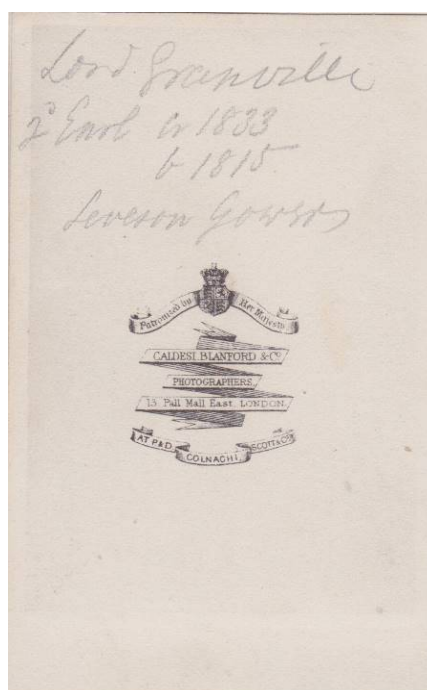 Lord Granville
2d Earl cr 1833
b 1815
Leveson Gower
Patronized by Her Majesty
CALDESI, BLANFORD & Co.
PHOTOGRAPHERS,
13 Pall Mall East LONDON.
AT P & D. COLNAGHI, SCOTT & Co.